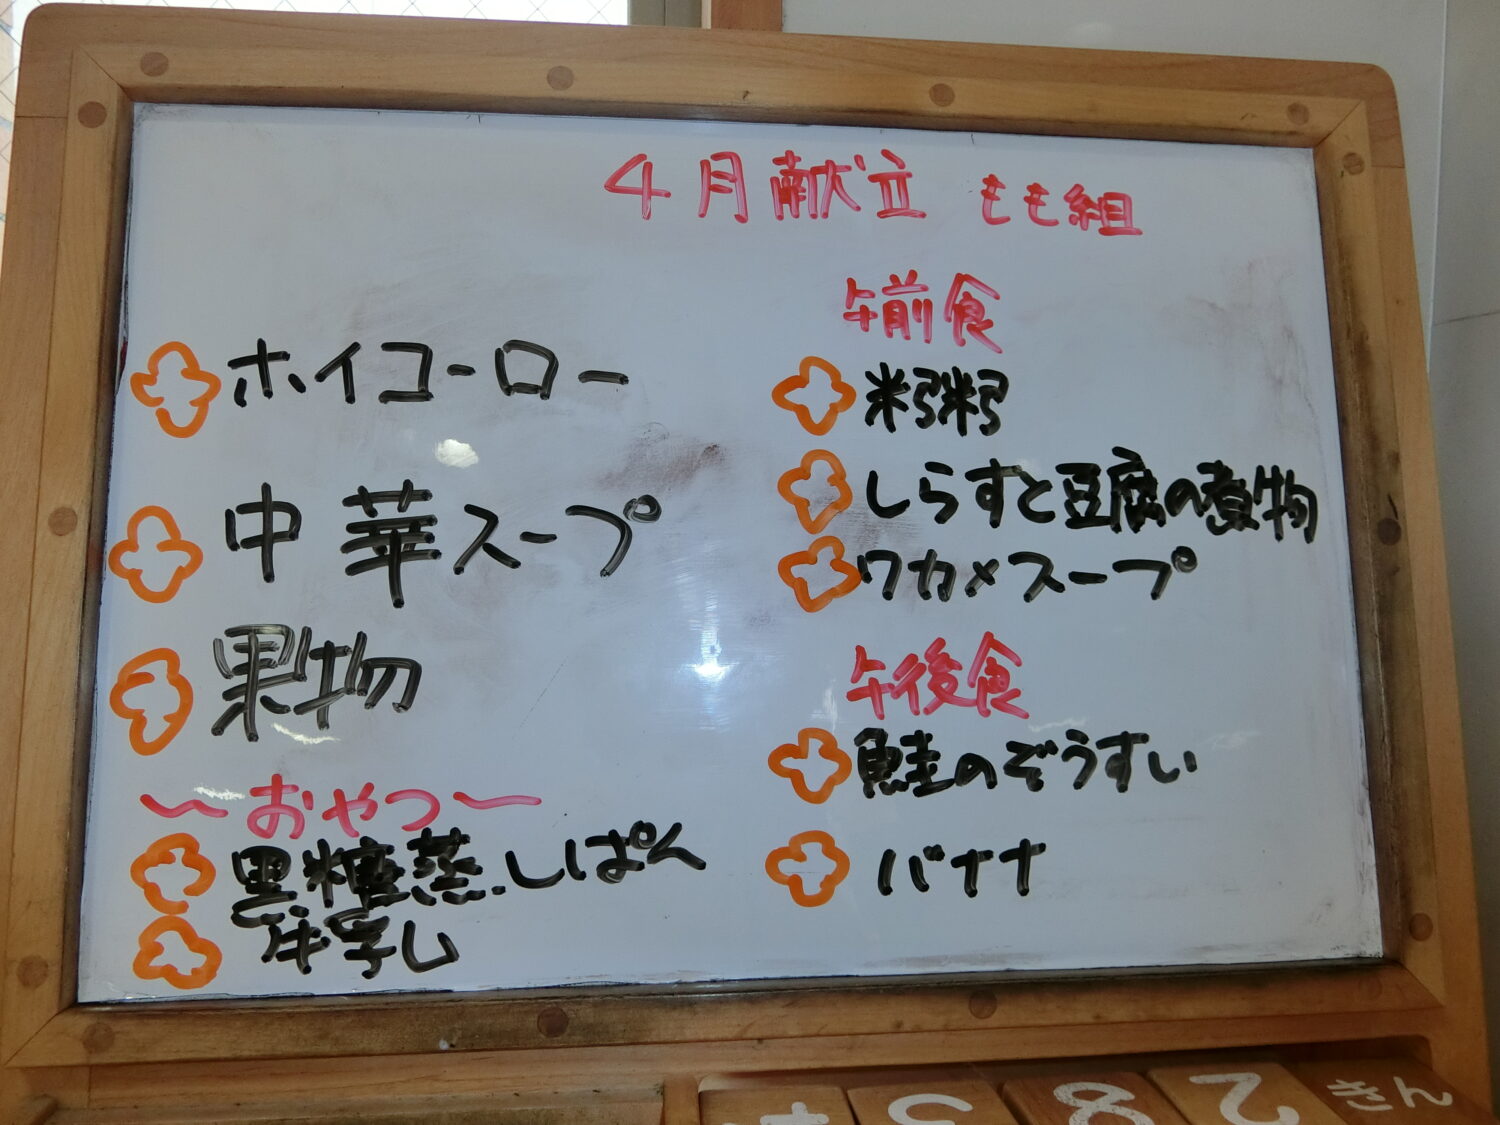 4月献立 もも組
ホイコーロー
中華スープ
果物
〜おやつ〜
黒糖蒸しぱん
牛乳
午前食
粥
しらすと豆腐の煮物
ワカメスープ
午後食
鮭のぞうすい
バナナ
2
きん